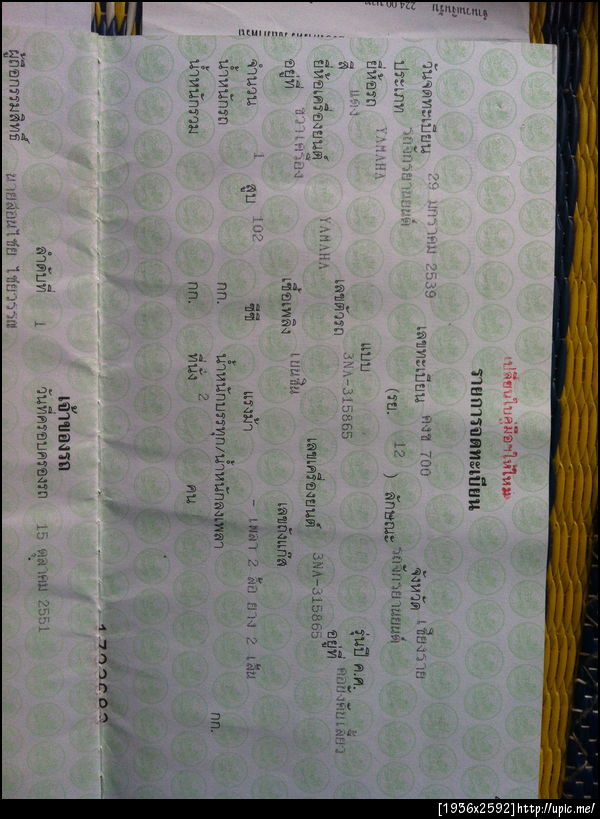 เปลี่ยนใบคู่มือฯให้ใหม่
รายการจดทะเบียน
วันจดทะเบียน 29 มกราคม 2539 เลขทะเบียน คงช 700 จังหวัด เชียงราย
ประเภท รถจักรยานยนต์ (รย. 12 ) ลักษณะ รถจักรยานยนต์
ยี่ห้อรถ YAMAHA แบบ รุ่นปี ค.ศ.
สี แดง เลขตัวรถ 3NA-315865 อยู่ที่ คอบังคับเลี้ยว
ยี่ห้อเครื่องยนต์ YAMAHA เลขเครื่องยนต์ 3NA-315865
อยู่ที่ ขวาเครื่อง เชื้อเพลิง เบนซิน เลขถังแก๊ส
จำนวน 1 สูบ 102 ซีซี แรงม้า - เพลา 2 ล้อ ยาง 2 เส้น
น้ำหนักรถ กก. น้ำหนักบรรทุก/น้ำหนักลงเพลา กก.
น้ำหนักรวม กก. ที่นั่ง 2 คน
เจ้าของรถ
ลำดับที่ 1 วันที่ครอบครองรถ 15 ตุลาคม 2551
ผู้ถือกรรมสิทธิ์ ไชยวรรณ
[1936x2592]http://upic.me/